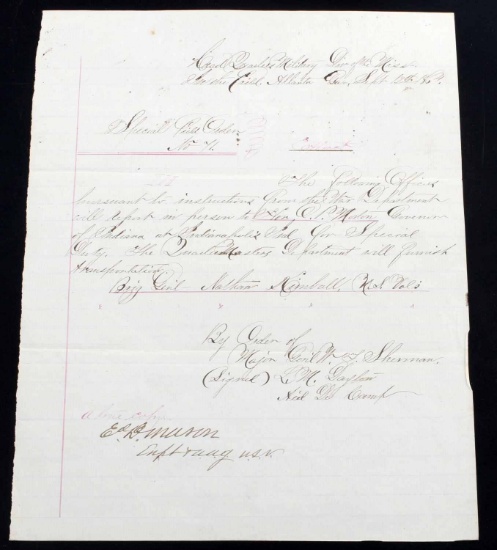 Head Quarters Military Div of the Miss
In the Field, Atlanta Geo, Sept 1864.
Special Field Orders
No 71.
Extract
The following Officer
pursuant to instructions from the War Department
will report in person to O. P. Morton Governor
of Indiana at Indianapolis Ind. for Special
Duty. The Quartermasters Department will furnish
transportation.
Brig Genl Nathan Kimball, U.S. Vols
By Order of
Major Genl W. T. Sherman,
(Signed) L. M. Dayton
Aid De Camp
a true copy
Ed. B. Mason
Capt & aag U.S.V.